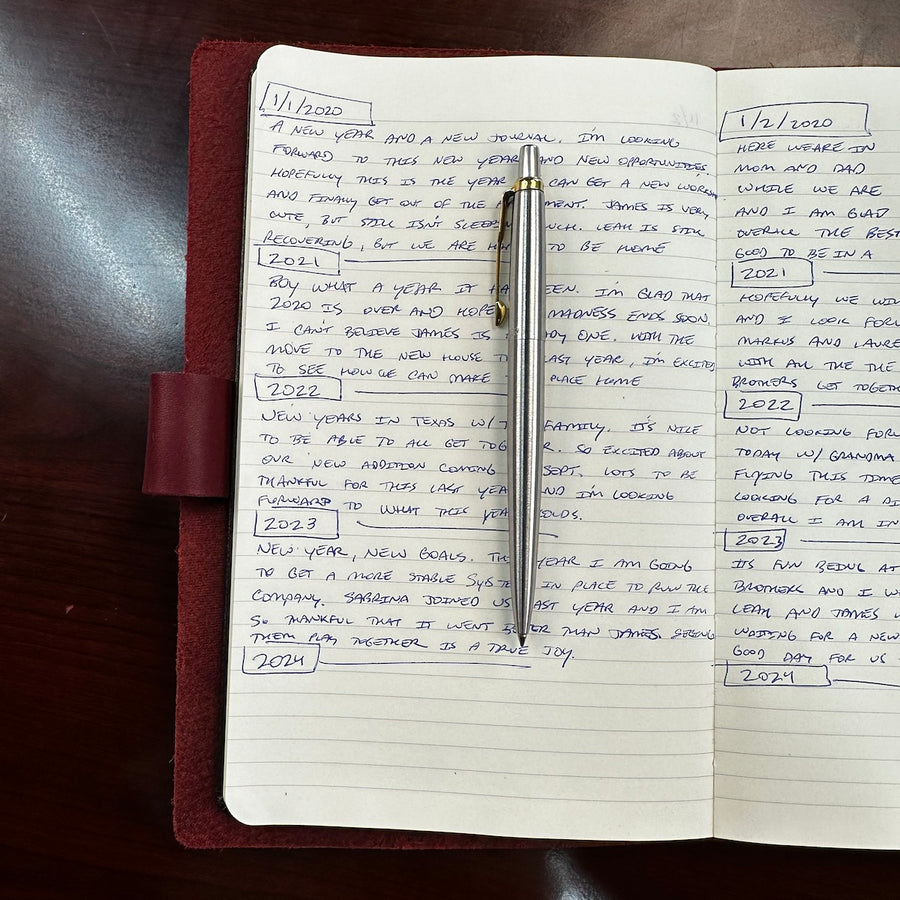 1/1/2020
A NEW YEAR AND A NEW JOURNAL. I'M LOOKING
FORWARD TO THIS NEW YEAR AND NEW OPPORTUNITIES.
HOPEFULLY THIS IS THE YEAR CAN GET A NEW
AND FINALLY GET OUT OF THE JAMES IS VERY
CUTE, BUT STILL ISN'T LEAH IS STILL
RECOVERING, BUT WE ARE TO BE HOME
2021
BOY WHAT A YEAR IT I'M GLAD THAT
2020 IS OVER AND MADNESS ENDS SOON.
I CAN'T BELIEVE JAMES IS ONE. WITH THE
MOVE TO THE NEW HOUSE LAST YEAR, I'M EXCITED
TO SEE HOW WE CAN MAKE PLACE HOME
2022
NEW YEARS IN TEXAS W/ FAMILY. IT'S NICE
TO BE ABLE TO ALL GET SO EXCITED ABOUT
OUR NEW ADDITION COMING SEPT. LOTS TO BE
THANKFUL FOR THIS LAST YEAR AND I'M LOOKING
FORWARD TO WHAT THIS YEAR
2023
NEW YEAR, NEW GOALS. YEAR I AM GOING
TO GET A MORE STABLE IN PLACE TO RUN THE
COMPANY. SABRINA JOINED US LAST YEAR AND I AM
SO THANKFUL THAT IT WENT THAN JAMES. SEEING
THEM PLAY TOGETHER IS A TRUE JOY.
2024
1/2/2020
HERE WE ARE IN
MOM AND DAD
WHILE WE ARE
AND I AM GLAD
OVERALL THE BEST
GOOD TO BE IN A
2021
HOPEFULLY WE
AND I LOOK
MARKUS AND
WITH ALL THE THE
BROTHERS GET
2022
NOT LOOKING
TODAY W/ GRANDMA
FLYING THIS TIME
LOOKING FOR A
OVERALL I AM IN
2023
ITS FUN BEING AT
BROTHERS AND I
LEAH AND JAMES
WAITING FOR A NEW
GOOD DAY FOR US
2024